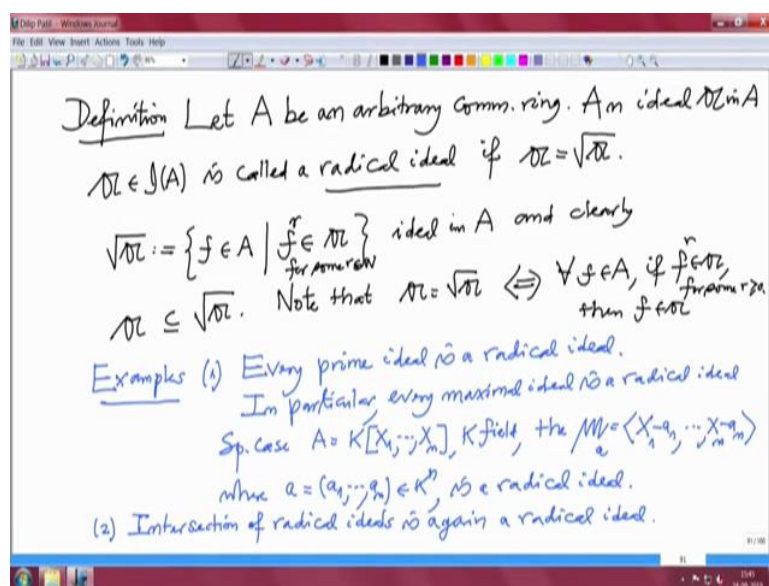 Dilip Patil - Windows Journal
File Edit View Insert Actions Tools Help
Definition Let A be an arbitrary comm. ring. An ideal 𝔞 in A
𝔞 ∈ 𝓘(A) is called a radical ideal if 𝔞 = √𝔞.
√𝔞 := {f ∈ A | f^r ∈ 𝔞 for some r ∈ ℕ} ideal in A and clearly
𝔞 ⊆ √𝔞. Note that 𝔞 = √𝔞 ⇔ ∀ f ∈ A, if f^r ∈ 𝔞, for some r > 0, then f ∈ 𝔞
Examples (1) Every prime ideal is a radical ideal.
In particular, every maximal ideal is a radical ideal
Sp. case A = K[X_1, ..., X_n], K field, the 𝔪_a = ⟨X_1 - a_1, ..., X_n - a_n⟩
where a = (a_1, ..., a_n) ∈ K^n, is a radical ideal.
(2) Intersection of radical ideals is again a radical ideal.
91/100
91
15:43